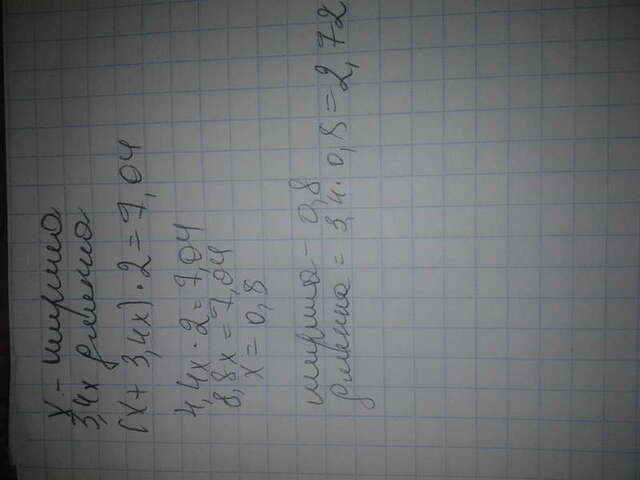 x - ширина
3,4x длинна
(x + 3,4x) · 2 = 7,04
4,4x · 2 = 7,04
8,8x = 7,04
x = 0,8
ширина - 0,8
длинна = 3,4 · 0,8 = 2,72